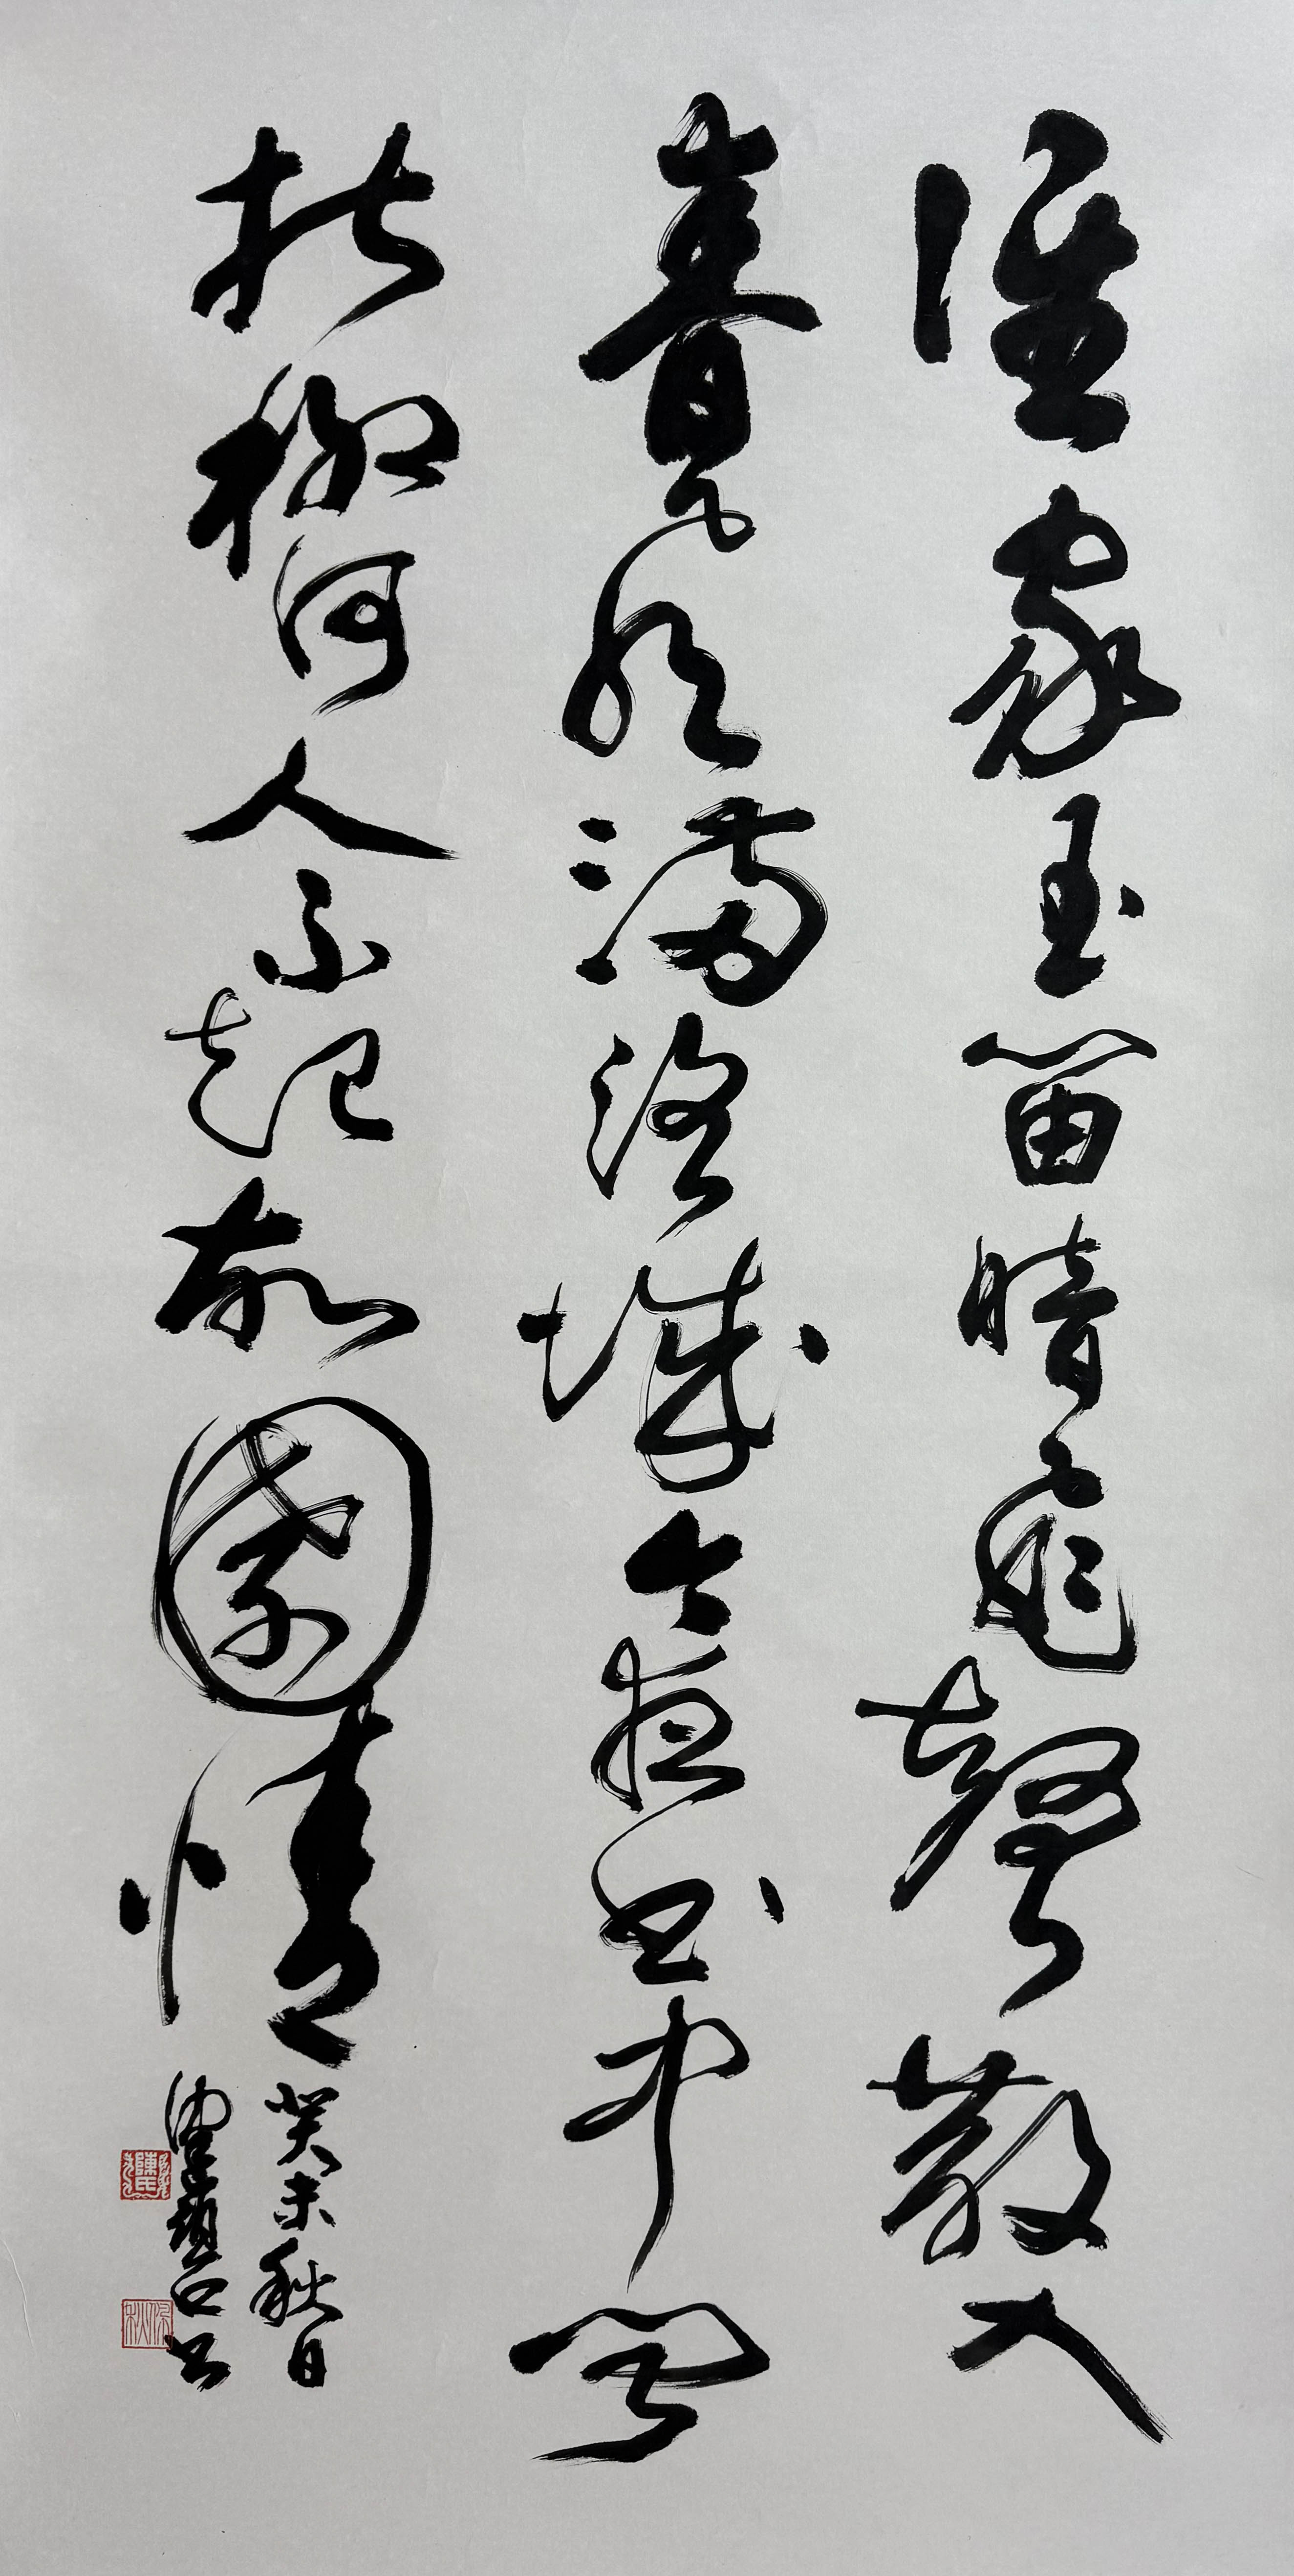 誰家玉笛暗飛聲散入
春風滿洛城今夜曲中聞
折柳何人不起故園情
癸未秋日
書